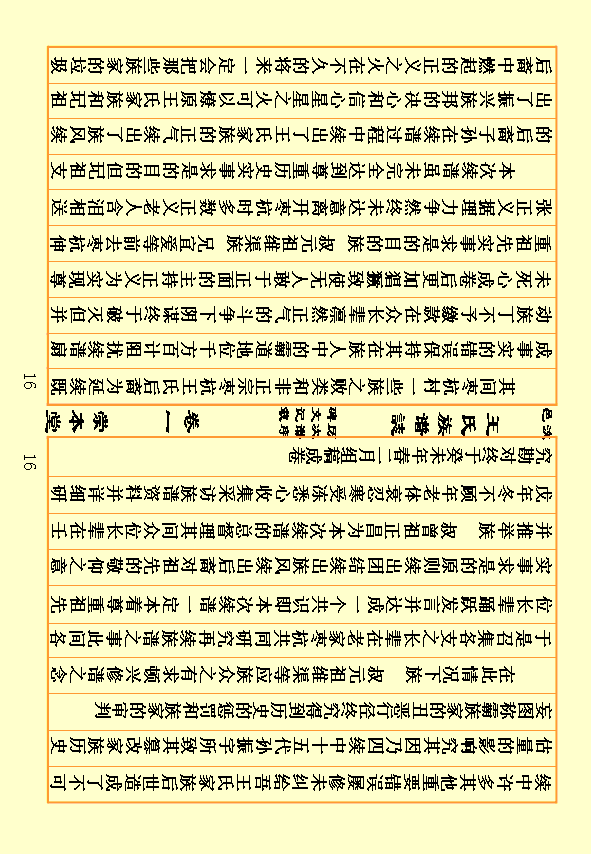 续中许多其他重要错误屡修未纠给吾王氏家族后世造成了不可
估量的影响究其因乃四续中十五代孙振宇所致其篡改家族历史
妄图称霸家族的丑恶行径终究得到历史的惩罚和族家的审判
在此情况下族 叔元祖维渠等应族众之有求顿兴修谱之念
于是召集各支之长辈在老家枣杭共同研究再续族谱之事此间各
位长辈踊跃发言并达成一个共识即本次续谱一定本着尊重祖先
实事求是的原则续出团结续出族风续出后裔对祖先的敬仰之意
并推举族 叔曾祖正昌为本次续谱的总督理其间众位长辈在壬
戌年冬不顾年老体衰忍寒受冻悉心收集采访族谱资料并详细研
究勘对终于癸未年春二月组稿成卷
王氏族谱誌
卷一
崇本堂
16
16
其间枣杭村一些败类之族和非宗正枣杭王氏后裔为延续既
成事实的错误保持其在族人中的霸道地位千方百计阻扰续谱煽
动族丁不予缴款在众长辈凛然正气的斗争下阴谋终于破灭但并
未死心成卷后更加猖獗致使无人敢于正面的主持正义为实现尊
重祖先实事求是的目的族 叔元祖维渠族 兄宜爱等前去枣杭伸
张正义据理力争然终未达意离开枣杭时多数正义老人含泪相送
本次续谱虽未完全达到尊重历史实事求是的目的但记祖文
的后裔子孙在续谱过程中续出了王氏家族的正气续出了族风续
出了振兴族邦的决心和信心星星之火可以燎原王氏家族和记祖
后裔中燃起的正义之火在不久的将来一定会把那些族家的垃圾